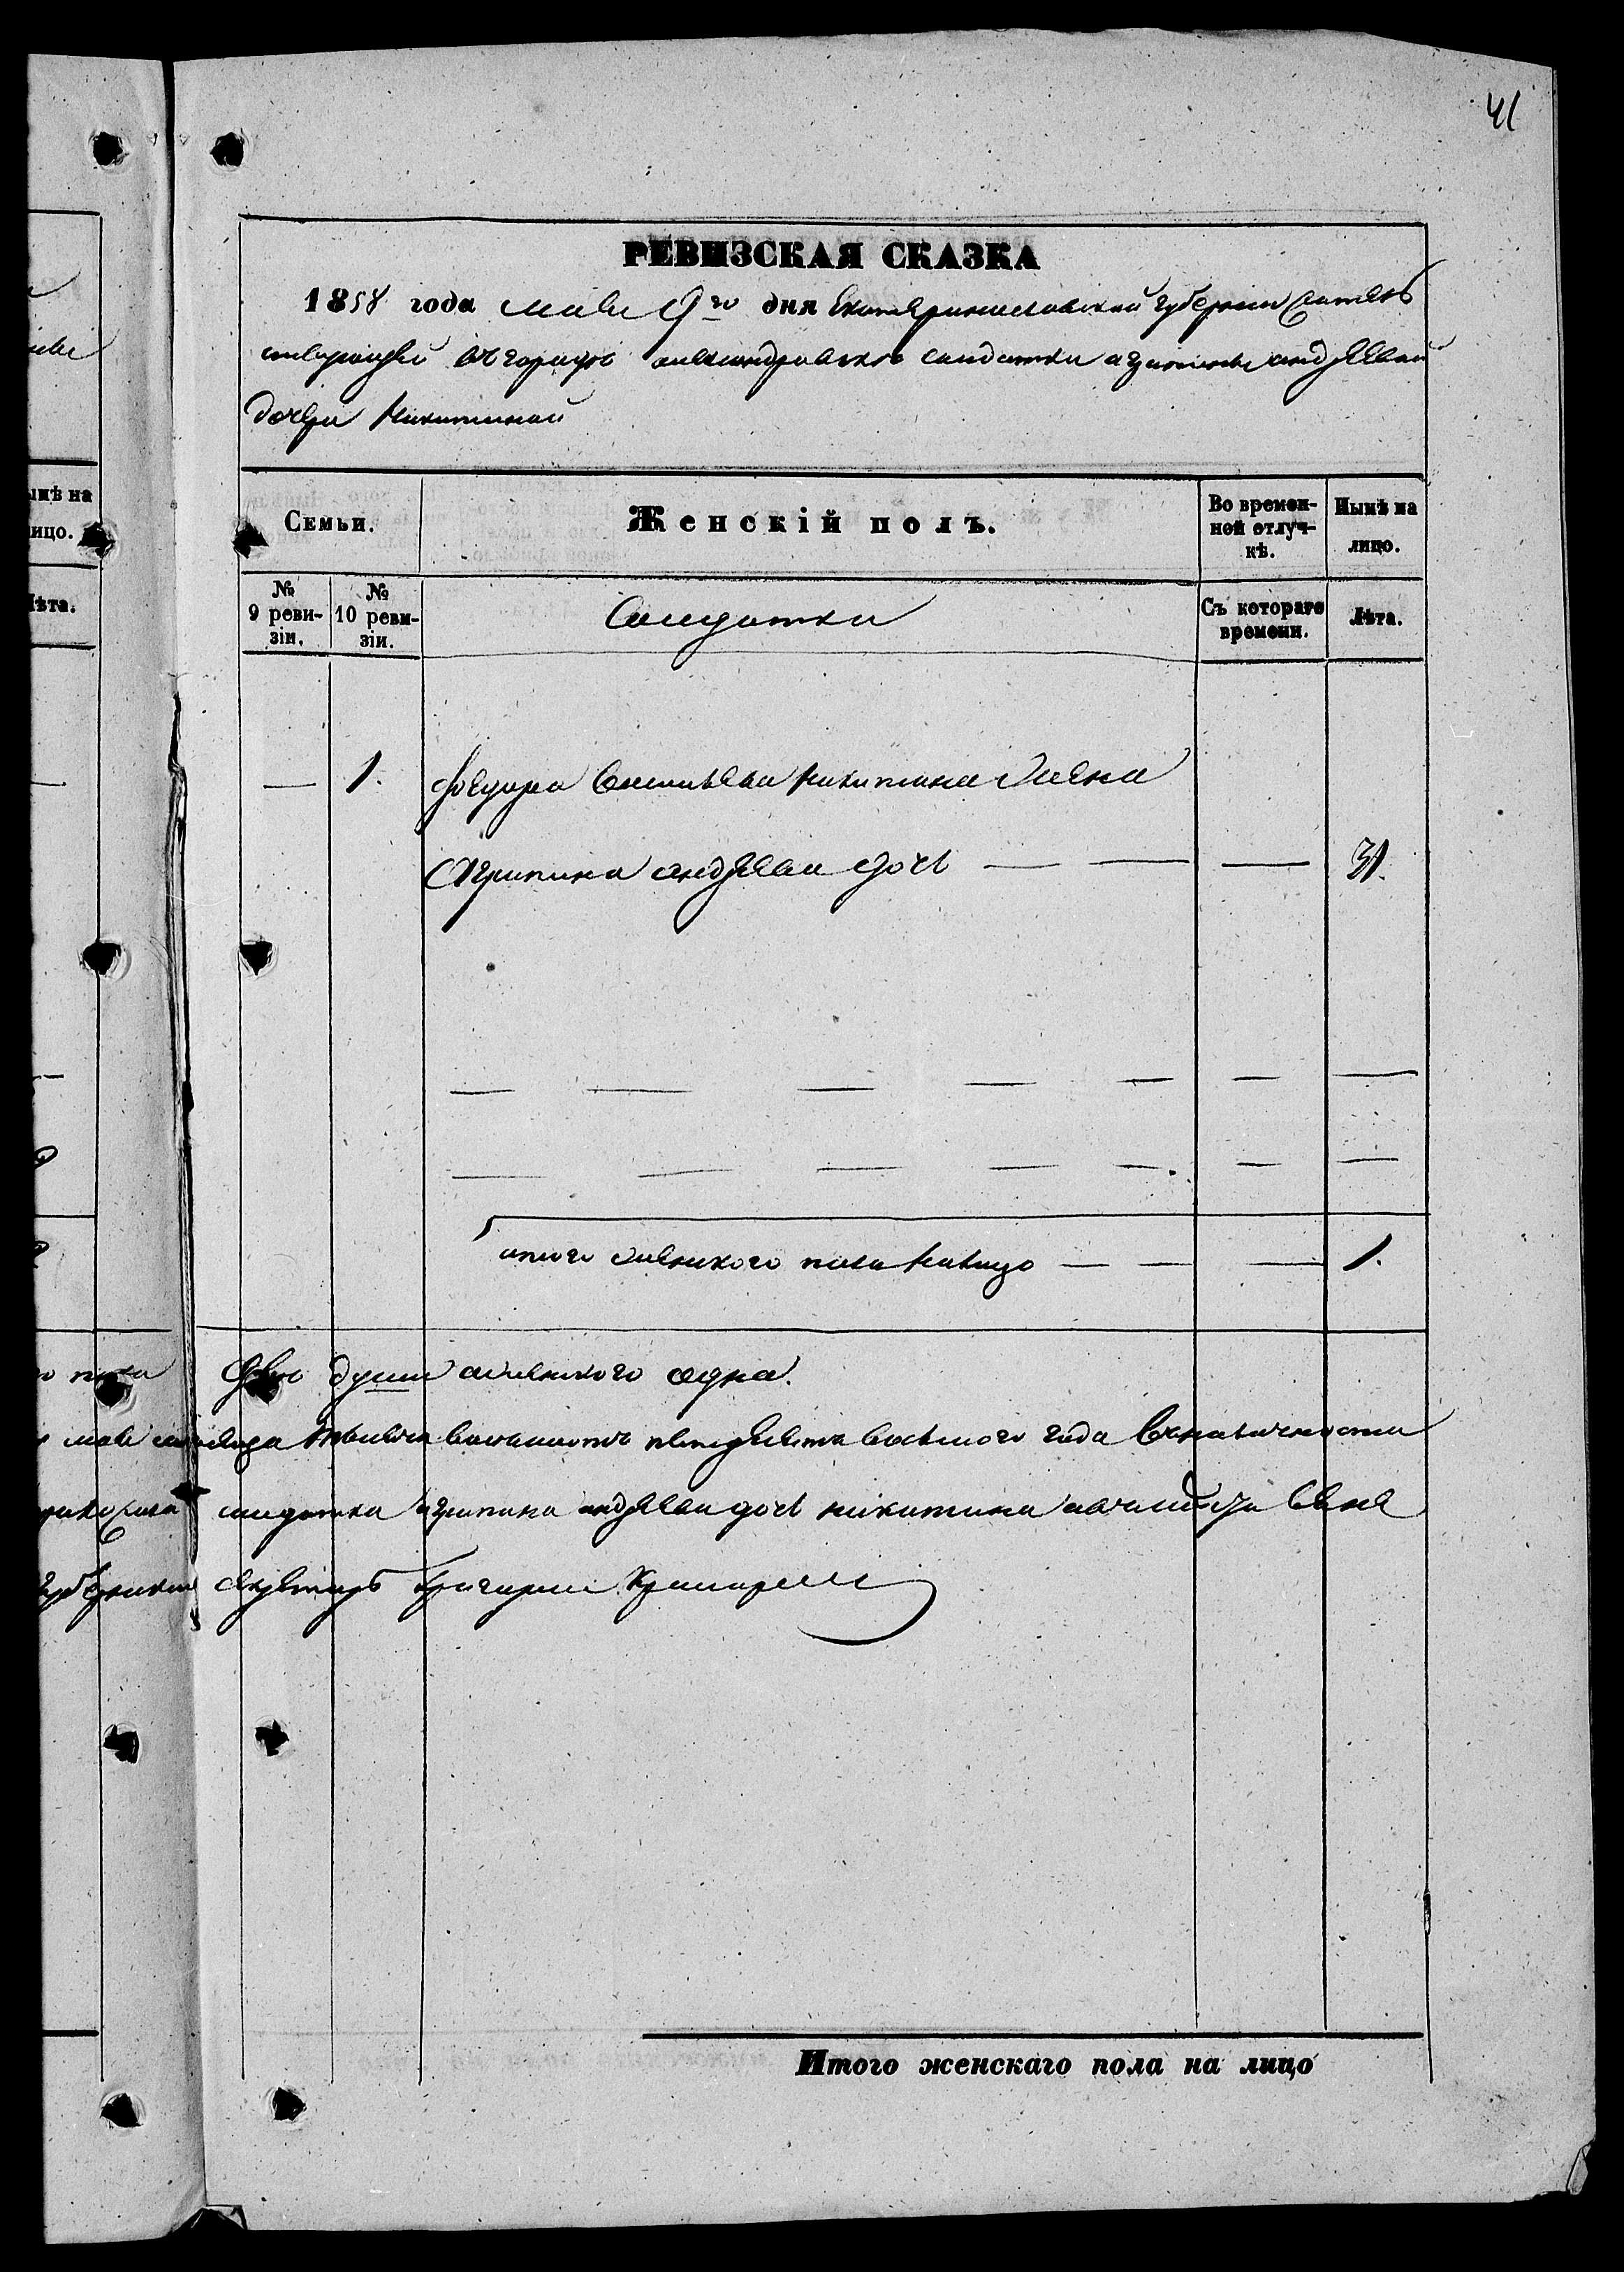 41
РЕВИЗСКАЯ СКАЗКА
1858 года мая 9го дня Екатеринославской губернии
в городе александровске солдатки агрипины андреевой
дочери Никитиной
ынѣ на
ицо.
ѣта.
Семьи.
Женскій полъ.
Во времен-
ной отлуч-
кѣ.
Нынѣ на
лицо.
№
9 реви-
зіи.
№
10 реви-
зіи.
Солдатки
Съ котораго
времени.
Лѣта.
— 1. Федора Васильева Никитина жена
Агрипина андреева дочь — — — 31.
итого женского пола налицо — — — 1.
о пола двѣ души а женского одна.
мая месяца тысяча восемьсот пятдесят восьмого года
солдатка агрипина андреева дочь никитина
Губернски секретарь Григорий
Итого женскаго пола на лицо